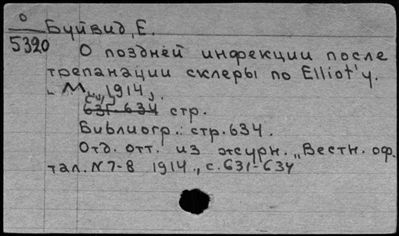 О
5320
Буйвид, Е.
О поздней инфекции после
трепанации склеры по Elliot'у.
М., 1914,
631-634 стр.
Библиогр.: стр. 634.
Отд. отт. из журн. „Вестн. оф
тал. N 7-8 1914, с. 631-634